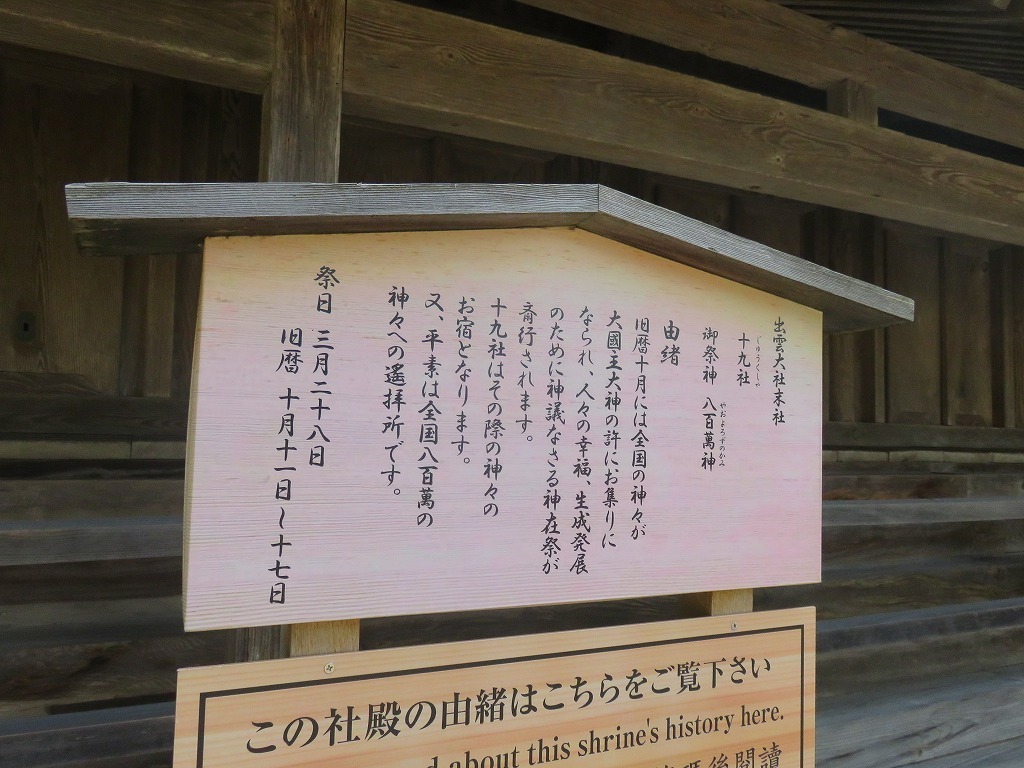 出雲大社末社
じゅうくしゃ
十九社
やおよろずのかみ
御祭神 八百萬神
由緒
旧暦十月には全国の神々が
大國主大神の許にお集りに
なられ、人々の幸福、生成発展
のために神議なさる神在祭が
斎行されます。
十九社はその際の神々の
お宿となります。
又、平素は全国八百萬の
神々への遙拝所です。
祭日 三月二十八日
旧暦 十月十一日~十七日
この社殿の由緒はこちらをご覧下さい
about this shrine's history here.
後閲讀